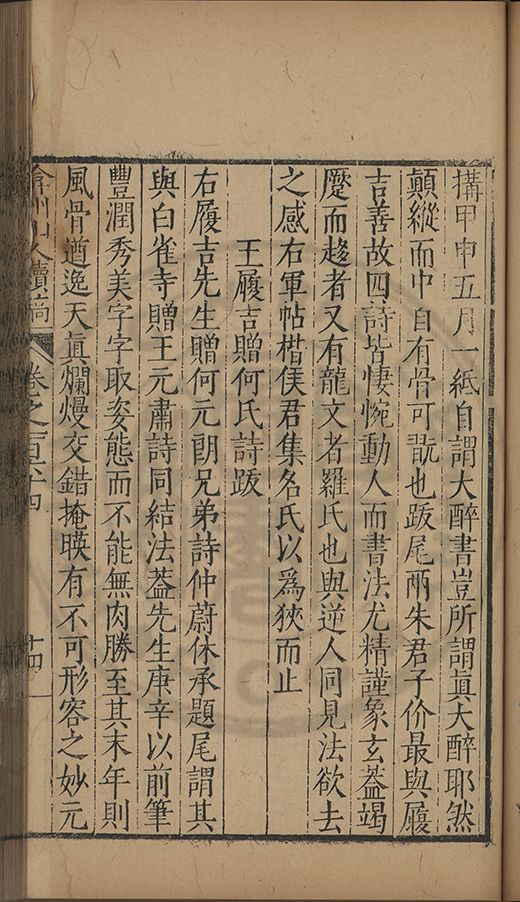 搆甲申五月一紙自謂大醉書豈所謂眞大醉耶然
顛縱而中自有骨可翫也跋尾兩朱君子价最與履
吉善故四詩皆悽惋動人而書法尤精謹象玄蓋竭
蹷而趍者又有龍文者羅氏也與逆人同見法欲去
之感右軍帖楷侯君集名氏以爲狹而止
王履吉贈何氏詩跋
右履吉先生贈何元朗兄弟詩仲蔚休承題尾謂其
與白雀寺贈王元肅詩同結法蓋先生庚辛以前筆
豐潤秀美字字取姿態而不能無肉勝至其末年則
風骨遒逸天眞爛熳交錯掩暎有不可形容之妙元
弇州山人續稿
卷之一百六十四
十四